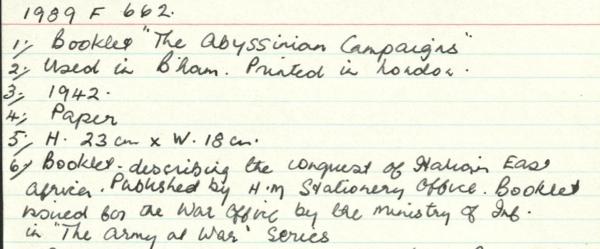 1989 F 662.
1; Booklet "The Abyssinian Campaigns"
2; Used in B'ham. Printed in London.
3; 1942.
4; Paper
5; H. 23 cm x W. 18 cm.
6; Booklet - describing the conquest of Italian East
Africa. Published by H.M Stationery Office. Booklet
issued for the War Office by the Ministry of Inf.
in "The Army at War" Series